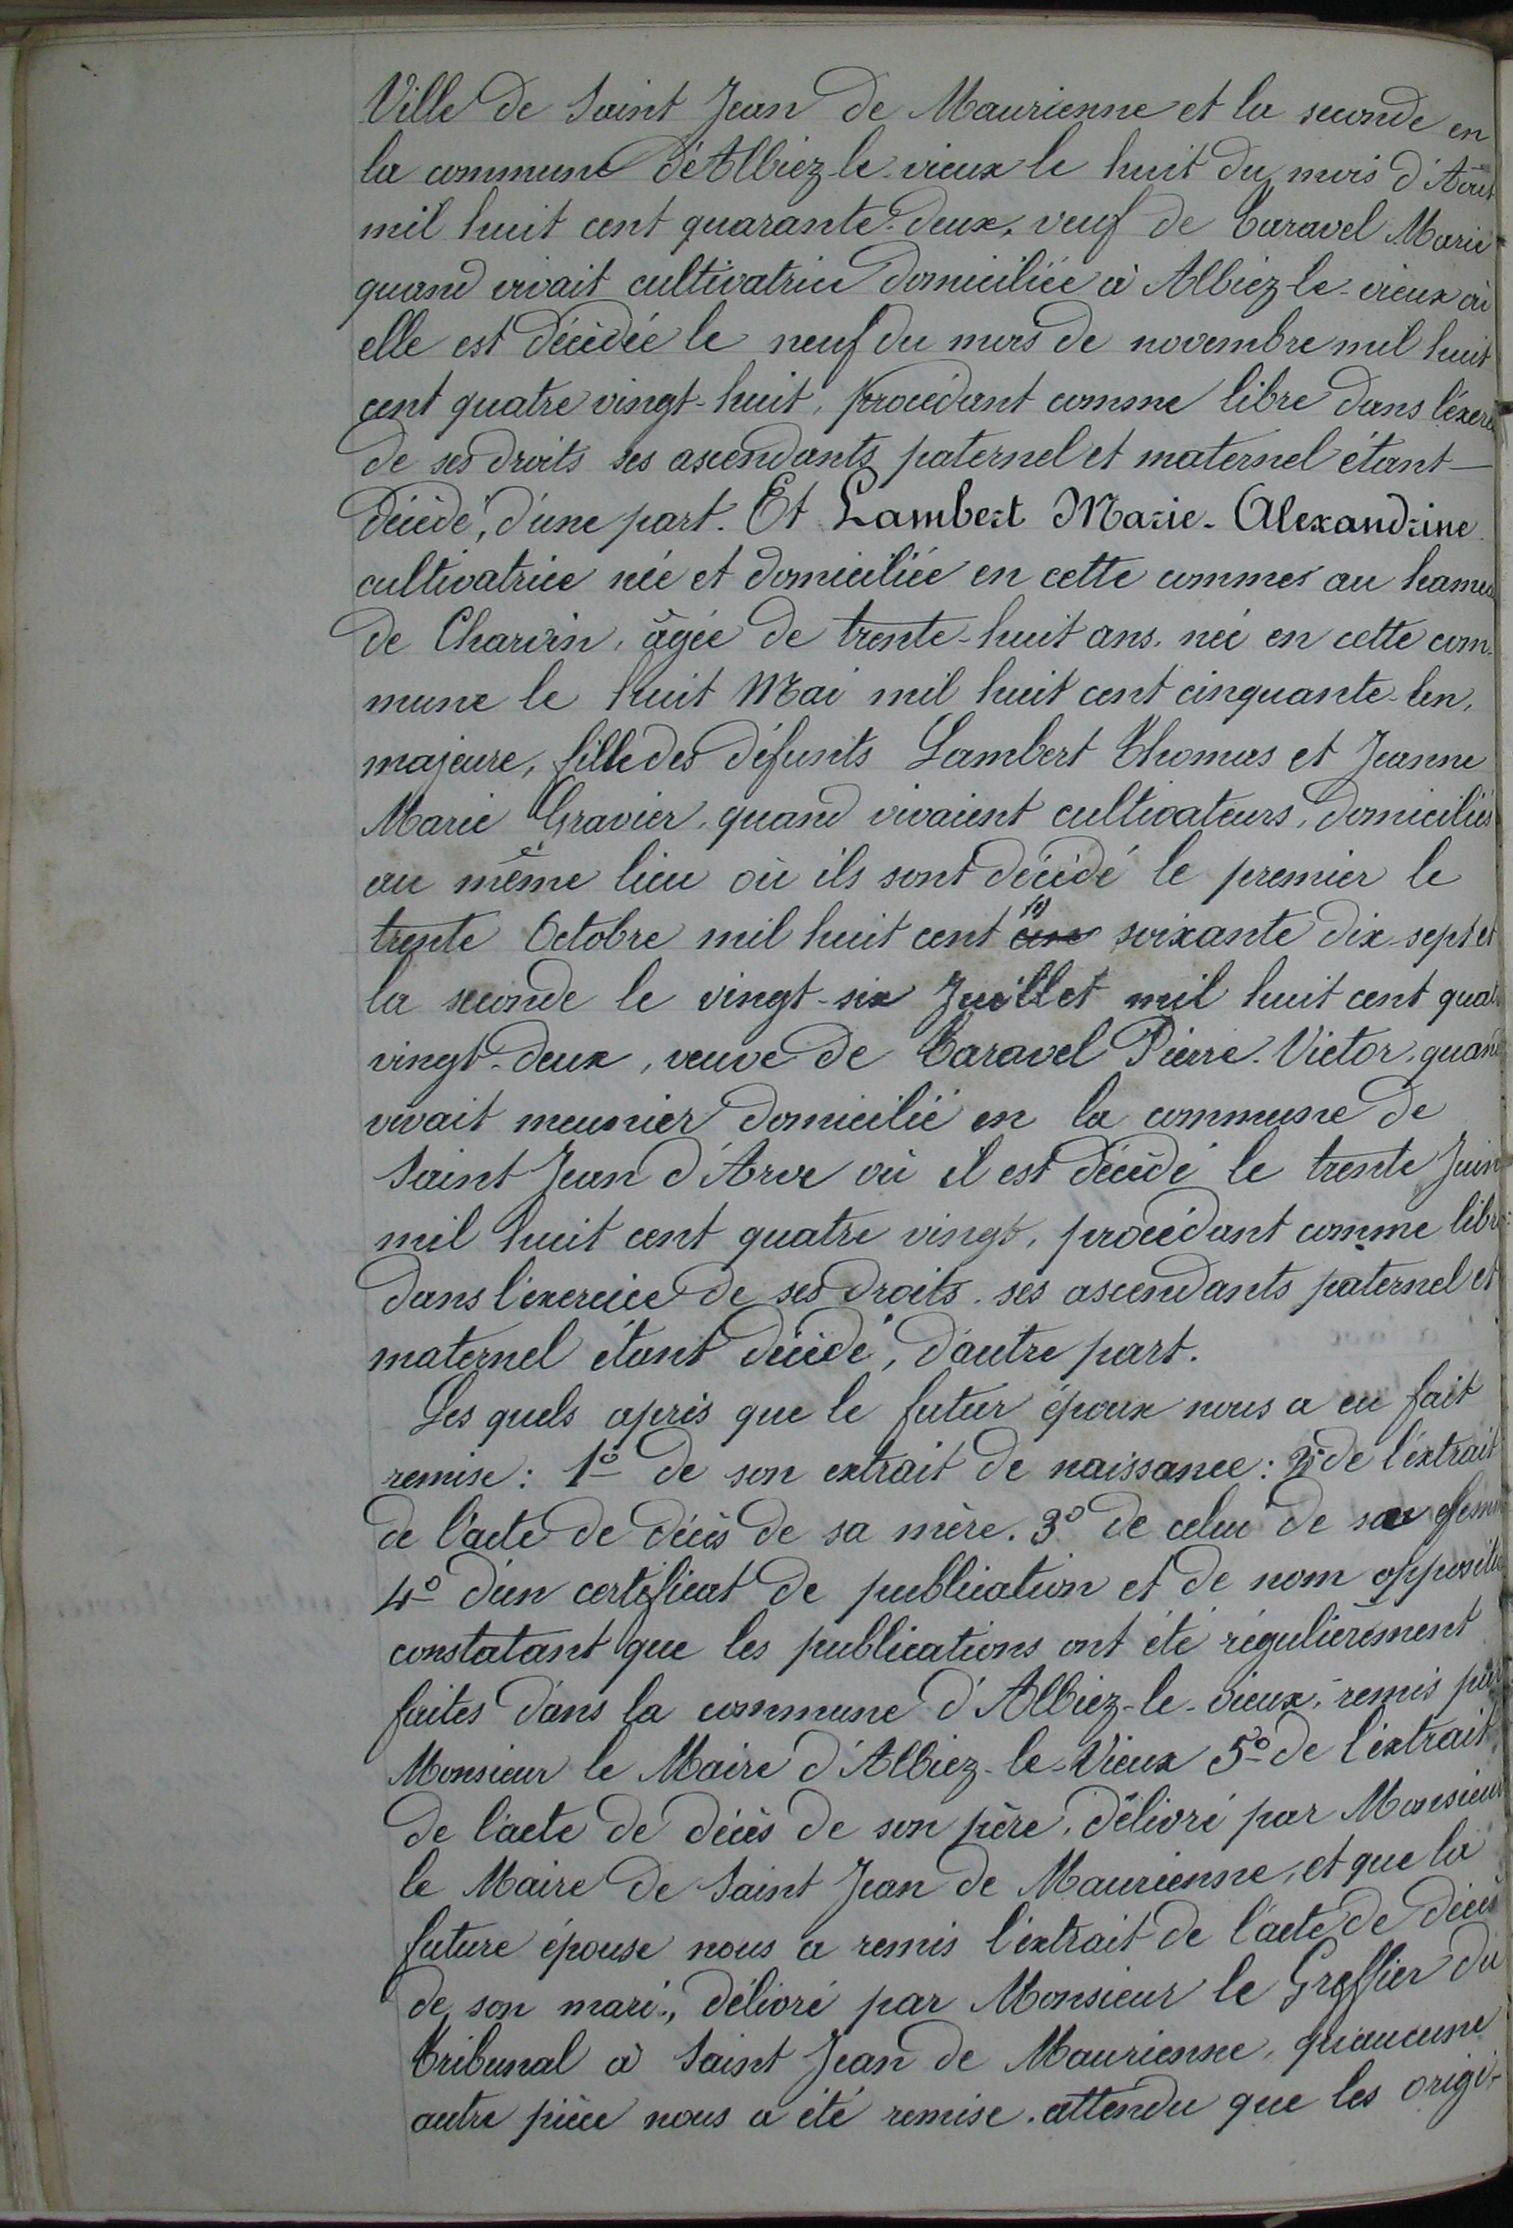 Ville de Saint Jean de Maurienne et la seconde en
la commune d'Albiez-le-vieux le huit du mois d'Août
mil huit cent quarante-deux, veuf de Caravel Marie
quand vivait cultivatrice domiciliée à Albiez-le-vieux où
elle est décédée le neuf du mois de novembre mil huit
cent quatre vingt-huit, procédant comme libre dans l'exerci
de ses droits ses ascendants paternel et maternel étant
décédé, d'une part. Et Lambert Marie-Alexandrine
cultivatrice née et domiciliée en cette commes au hameau
de Charvin, âgée de trente-huit ans, née en cette com-
mune le huit Mai mil huit cent cinquante-un,
majeure, fille des défunts Lambert Thomas et Jeanne
Marie Gravier, quand vivaient cultivateurs, domiciliés
au même lieu où ils sont décédé le premier le
trente Octobre mil huit cent soixante dix-sept et
la seconde le vingt-six Juillet mil huit cent quatre
vingt-deux, veuve de Caravel Pierre-Victor, quand
vivait meunier domicilié en la commune de
Saint Jean d'Arve où il est décédé le trente Juin
mil huit cent quatre vingt, procédant comme libre
dans l'exercice de ses droits, ses ascendants paternel et
maternel étant décédé, d'autre part.
Les quels après que le futur époux nous a eu fait
remise: 1º de son extrait de naissance: 2º de l'extrait
de l'acte de décès de sa mère. 3º de celui de sa femme
4º d'un certificat de publication et de nom opposition
constatant que les publications ont été régulièrement
faites dans la commune d'Albiez-le-vieux, remis par
Monsieur le Maire d'Albiez-le-Vieux 5º de l'extrait
de l'acte de décès de son père, délivré par Monsieur
le Maire de Saint Jean de Maurienne, et que la
future épouse nous a remis l'extrait de l'acte de décès
de son mari, délivré par Monsieur le Greffier du
Tribunal à Saint Jean de Maurienne, qu'aucune
autre pièce nous a été remise. attendu que les origi-